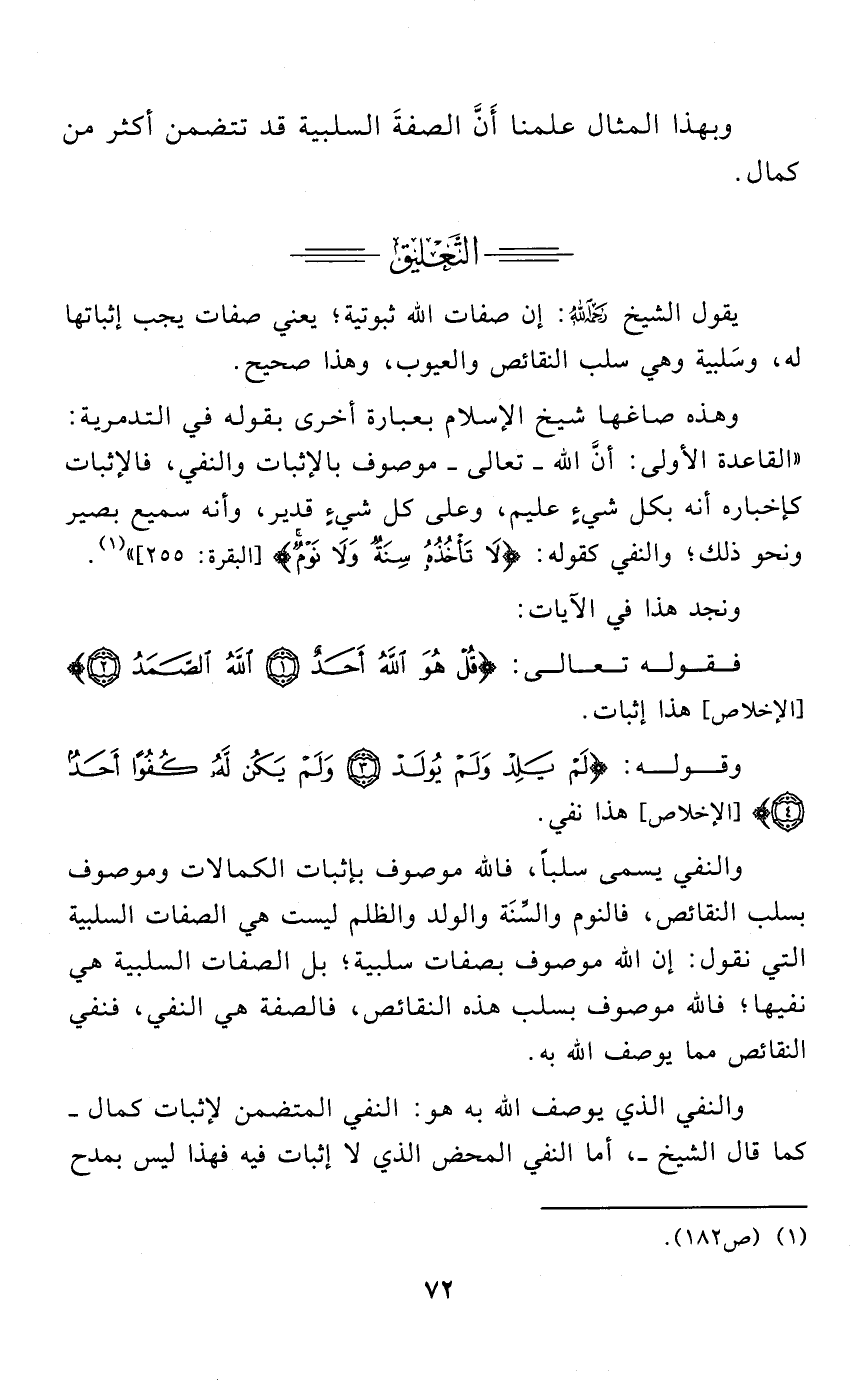 وبهذا المثال علمنا أَنَّ الصفةَ السلبية قد تتضمن أكثر من
كمال.
التَّعْلِيق
يقول الشيخ رَحِمَهُ اللهُ: إن صفات الله ثبوتية؛ يعني صفات يجب إثباتها
له، وسَلبية وهي سلب النقائص والعيوب، وهذا صحيح.
وهذه صاغها شيخ الإسلام بعبارة أخرى بقوله في التدمرية:
«القاعدة الأولى: أنَّ الله ـ تعالى ـ موصوف بالإثبات والنفي، فالإثبات
كإخباره أنه بكل شيءٍ عليم، وعلى كل شيءٍ قدير، وأنه سميع بصير
ونحو ذلك؛ والنفي كقوله: ﴿لَا تَأْخُذُهُۥ سِنَةٌ وَلَا نَوْمٌۚ﴾ [البقرة: ٢٥٥]»(١).
ونجد هذا في الآيات:
فـقـولـه تـعـالـى: ﴿قُلْ هُوَ ٱللَّهُ أَحَدٌ ١ ٱللَّهُ ٱلصَّمَدُ ٢﴾
[الإخلاص] هذا إثبات.
وقـولـه: ﴿لَمْ يَلِدْ وَلَمْ يُولَدْ ٣ وَلَمْ يَكُن لَّهُۥ كُفُوًا أَحَدٌۢ
٤﴾ [الإخلاص] هذا نفي.
والنفي يسمى سلباً، فالله موصوف بإثبات الكمالات وموصوف
بسلب النقائص، فالنوم والسِّنَة والولد والظلم ليست هي الصفات السلبية
التي نقول: إن الله موصوف بصفات سلبية؛ بل الصفات السلبية هي
نفيها؛ فالله موصوف بسلب هذه النقائص، فالصفة هي النفي، فنفي
النقائص مما يوصف الله به.
والنفي الذي يوصف الله به هو: النفي المتضمن لإثبات كمال ـ
كما قال الشيخ ـ، أما النفي المحض الذي لا إثبات فيه فهذا ليس بمدح
(١) (ص١٨٢).
٧٢